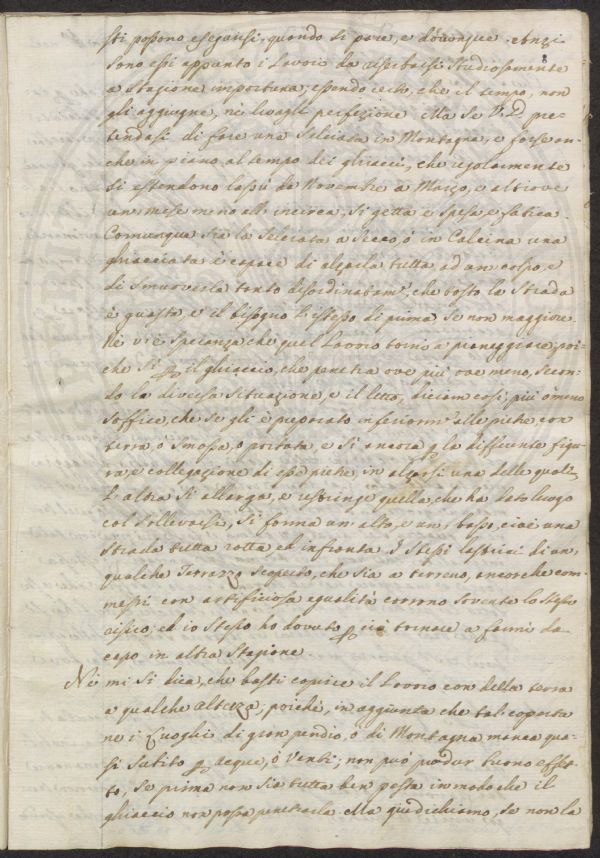 sti possono eseguirsi quando si pare, e dovunque. Anzi
8
sono essi appunto i Lavori da riserbarsi studiosamente
a stagione importuna; essendo certo, che il tempo, non
gli aggiugne, nè toglie perfezione. Ma se V.D. pre-
tendasi di fare una Selciata in Montagna, e forse an-
che in piano al tempo dei ghiacci, che regolarmente
si estendono lassù da Novembre a Marzo, e altrove
un mese meno all' incirca, si getta e spesa, e fatica.
Comunque sia la Selciata a Secco, ó in Calcina una
ghiacciata è capace di alzarla tutta ad un colpo, e
di smuoverla tanto disordinatam.e, che tosto la strada
è guasta, e il bisogno l' istesso di prima se non maggiore.
Nè v'è speranza che quel Lavoro torni a pianeggiare, poi-
che si p il ghiaccio, che penetra ove più ove meno, secon-
do la diversa situazione, e il letto, diciam così, più ò meno
soffice, che se gli è preparato inferiorm.e alle pietre con
terra, ò smossa, o portata e si ancora p la differente figu-
ra, e collegazione di esse pietre, in alzarsi una delle quali
l' altra si allarga, e restringe quella, che ha dato luogo
col sollevarsi, si forma un' alto, e un basso, cioè una
strada tutta rotta ed infranta. I stessi lastrici di un
qualche Terrazzo scoperto, che sia a terreno, ancorche com-
messi con artificiosa egualità corrono sovente lo stesso
risico; ed io stesso ho dovuto p ciò tornare a farmi da
capo in altra Stagione.
Nè mi si dica, che basti coprire il Lavoro con della terra
a qualche altezza; poichè, in aggiunta che tal coperta
ne i Luoghi di gran pendio, ò di Montagna manca qua-
si subito p Acque, ò Venti; non può produr buono effet-
to, se prima non sia tutta ben pesta in modo che il
ghiaccio non possa penetrarla. Ma que dichiamo, se non la